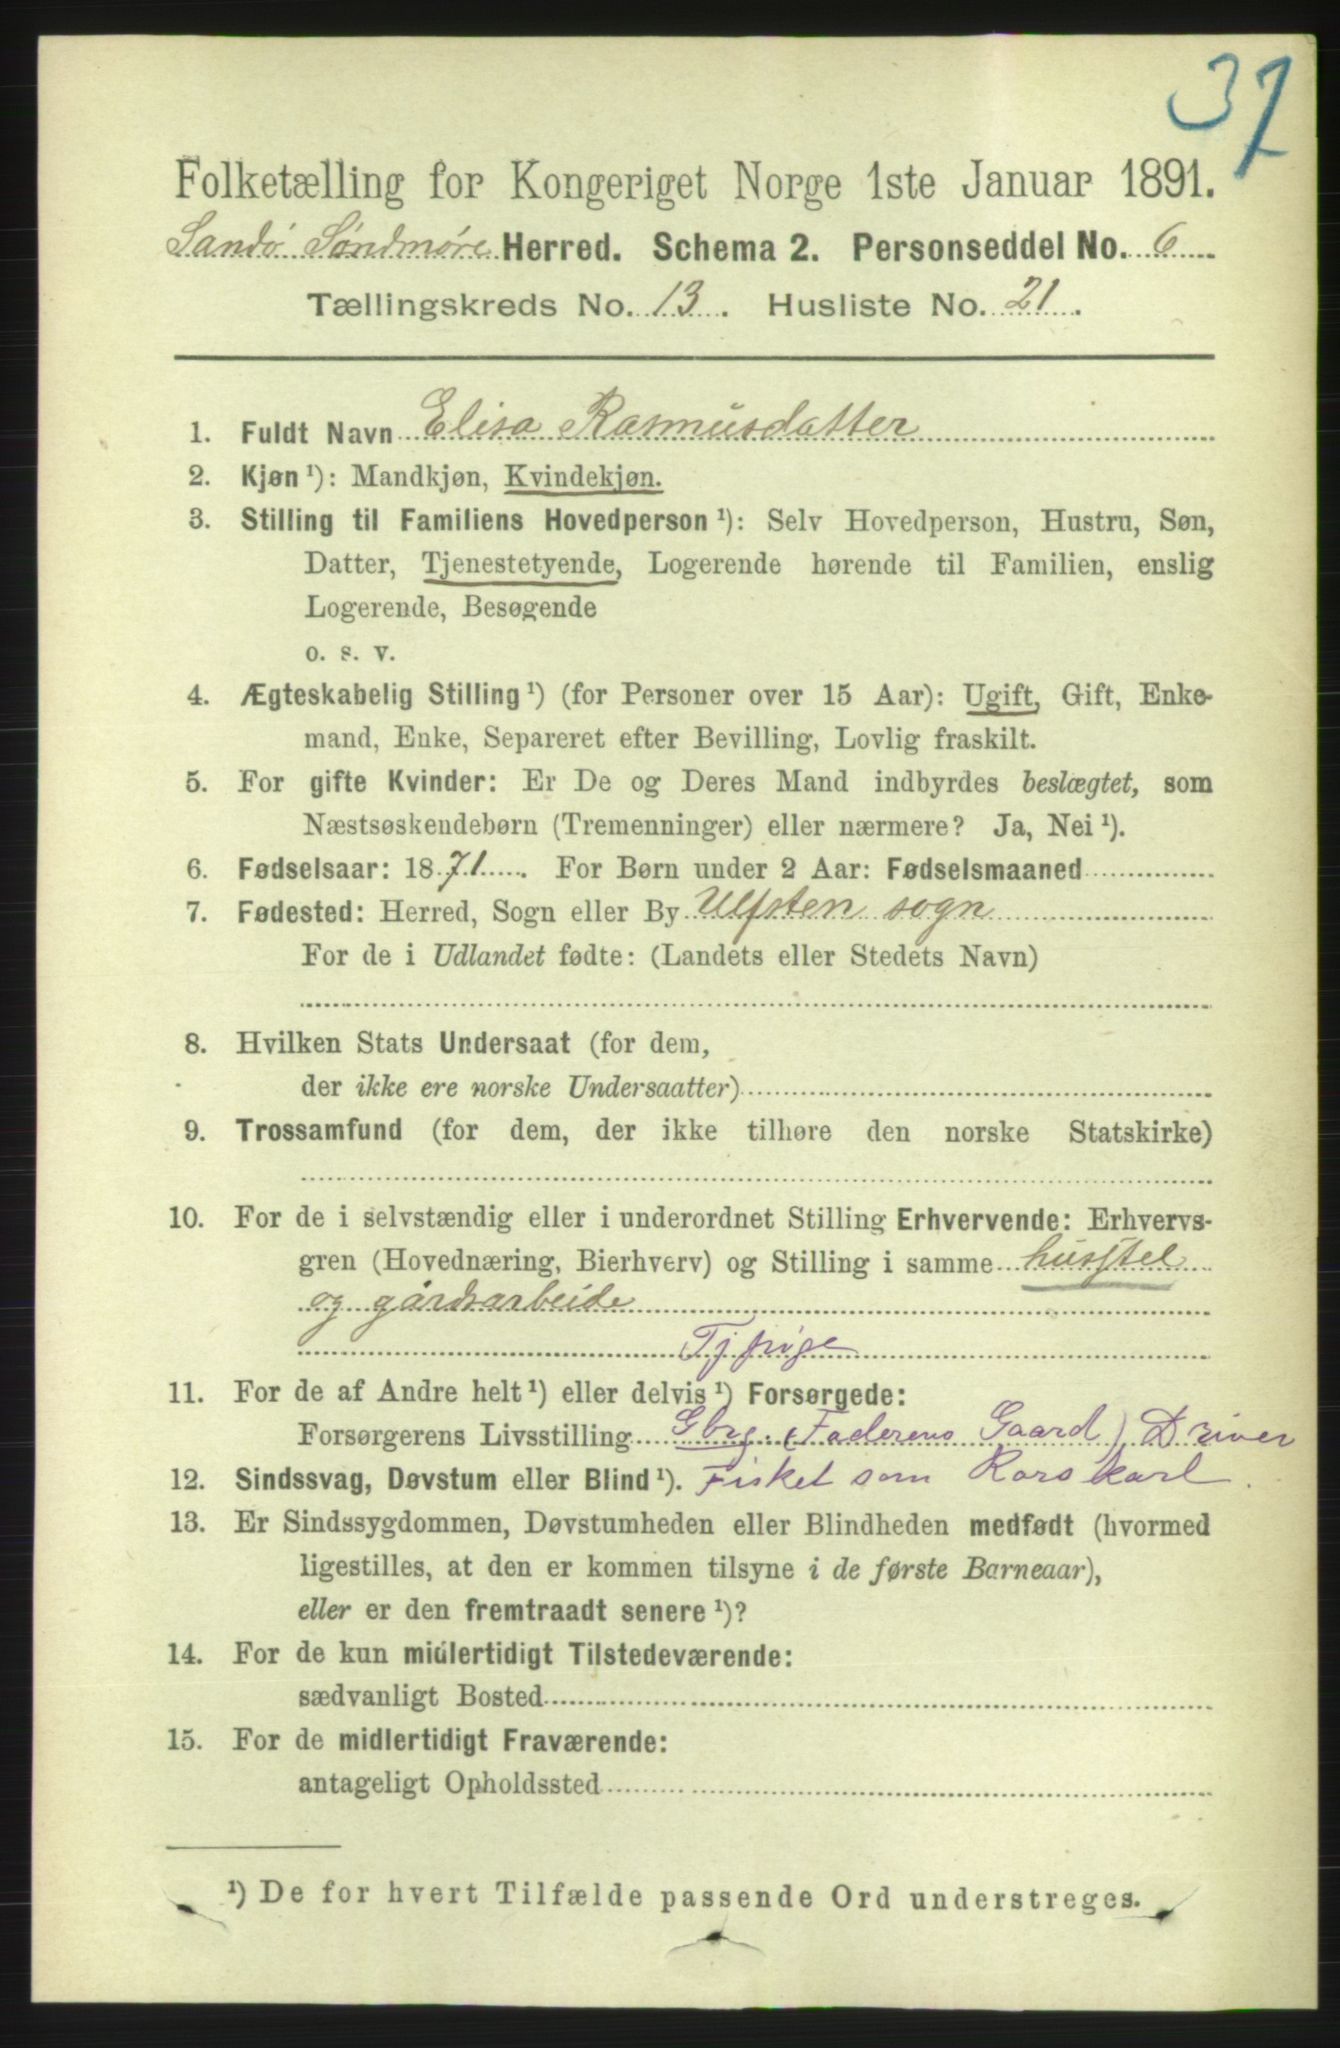 37
Folketælling for Kongeriget Norge 1ste Januar 1891.
Sandö Söndmöre Herred. Schema 2. Personseddel No. 6
Tællingskreds No. 13. Husliste No. 21.
1. Fuldt Navn Elisa Rasmusdatter
2. Kjøn ¹): Mandkjøn, Kvindekjøn.
3. Stilling til Familiens Hovedperson ¹): Selv Hovedperson, Hustru, Søn,
Datter, Tjenestetyende, Logerende hørende til Familien, enslig
Logerende, Besøgende
o. s. v.
4. Ægteskabelig Stilling ¹) (for Personer over 15 Aar): Ugift, Gift, Enke-
mand, Enke, Separeret efter Bevilling, Lovlig fraskilt.
5. For gifte Kvinder: Er De og Deres Mand indbyrdes beslægtet, som
Næstsøskendebørn (Tremenninger) eller nærmere? Ja, Nei ¹).
6. Fødselsaar: 1871. For Børn under 2 Aar: Fødselsmaaned
7. Fødested: Herred, Sogn eller By Ulfsten sogn
For de i Udlandet fødte: (Landets eller Stedets Navn)
8. Hvilken Stats Undersaat (for dem,
der ikke ere norske Undersaatter)
9. Trossamfund (for dem, der ikke tilhøre den norske Statskirke)
10. For de i selvstændig eller i underordnet Stilling Erhvervende: Erhvervs-
gren (Hovednæring, Bierhverv) og Stilling i samme husstel
og gårdsarbeide
Tj pige
11. For de af Andre helt ¹) eller delvis ¹) Forsørgede:
Forsørgerens Livsstilling Gbrg. (Faderens Gaard) Driver
12. Sindssvag, Døvstum eller Blind ¹). Fisket som Rorskarl
13. Er Sindssygdommen, Døvstumheden eller Blindheden medfødt (hvormed
ligestilles, at den er kommen tilsyne i de første Barneaar),
eller er den fremtraadt senere ¹)?
14. For de kun midlertidigt Tilstedeværende:
sædvanligt Bosted
15. For de midlertidigt Fraværende:
antageligt Opholdssted
¹) De for hvert Tilfælde passende Ord understreges.